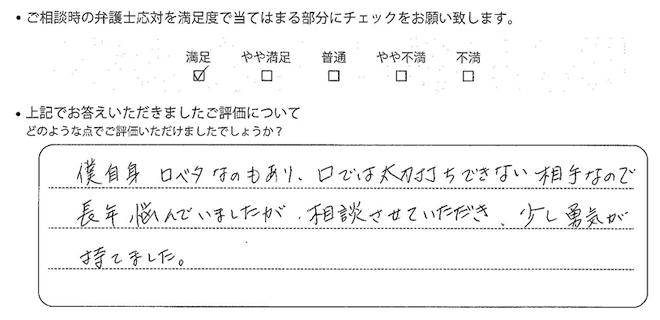 • ご相談時の弁護士応対を満足度で当てはまる部分にチェックをお願い致します。
満足 やや満足 普通 やや不満 不満
☑ ☐ ☐ ☐ ☐
• 上記でお答えいただきましたご評価について
どのような点でご評価いただけましたでしょうか？
僕自身 口ベタなのもあり、口では太刀打ちできない相手なので
長年悩んでいましたが、相談させていただき、少し勇気が
持てました。